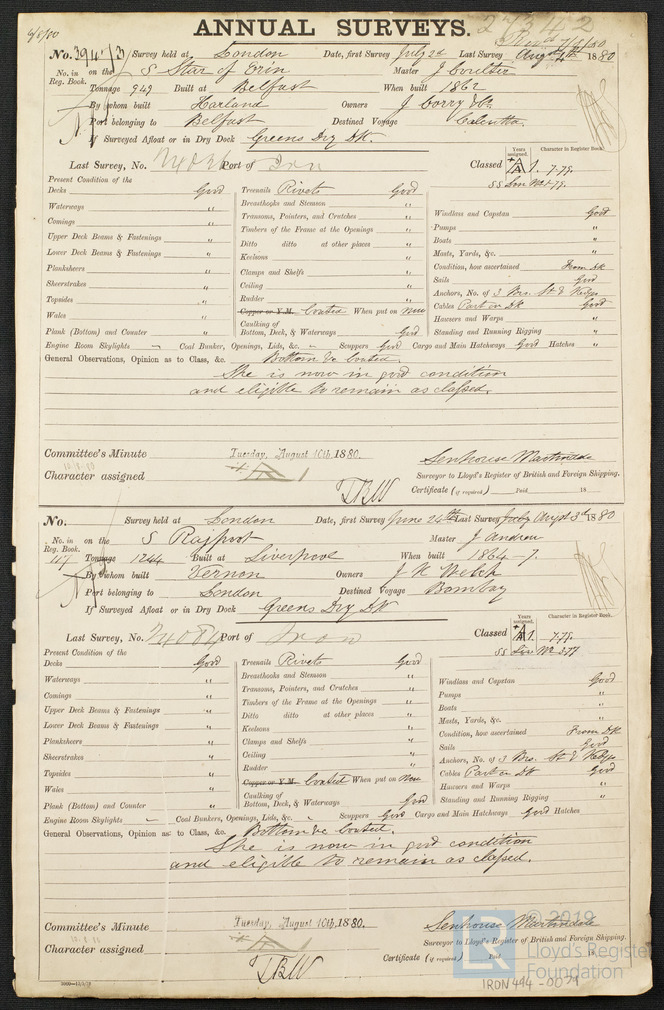 6/8/80
ANNUAL SURVEYS.
No. 39473 Survey held at London Date, first Survey July 26 Last Survey Augt 4th 1880
No. in Reg. Book. on the S Star of Erin Master J Coulter
Tonnage 949 Built at Belfast When built 1862
By whom built Harland Owners J Corry & Co
Port belonging to Belfast Destined Voyage Calcutta
If Surveyed Afloat or in Dry Dock Greens Dry Dk.
Last Survey, No. Port of Lon Classed A 1. 7.79. Years assigned. Character in Register Book.
SS Lon No 1-79.
Present Condition of the
Decks Good Treenails Rivets Good
Waterways " Breasthooks and Stemson " Windlass and Capstan Good
Comings " Transoms, Pointers, and Crutches " Pumps "
Upper Deck Beams & Fastenings " Timbers of the Frame at the Openings " Boats "
Lower Deck Beams & Fastenings " Ditto ditto at other places " Masts, Yards, &c. "
Planksheers " Keelsons " Condition, how ascertained From Dk
Sheerstrakes " Clamps and Shelfs " Sails Good
Topsides " Ceiling " Anchors, No. of 3 Brs. St & Kedges
Wales " Rudder " Cables Part on Dk Good
Copper or Y.M. Coated When put on Now Hawsers and Warps "
Plank (Bottom) and Counter " Caulking of Bottom, Deck, & Waterways Good Standing and Running Rigging "
Engine Room Skylights — Coal Bunker, Openings, Lids, &c. — Scuppers Good Cargo and Main Hatchways Good Hatches "
General Observations, Opinion as to Class, &c. Bottom &c Coated.
She is now in good condition
and eligible to remain as classed.
Committee's Minute Tuesday, August 10th, 1880. Senhouse Martindale
Character assigned A 1 Surveyor to Lloyd's Register of British and Foreign Shipping.
Certificate (if required) Paid 18
No. Survey held at London Date, first Survey June 24th Last Survey Augt 3d 1880
No. in Reg. Book. on the S Rajpoot Master J Andrew
47 Tonnage 1244 Built at Liverpool When built 1864-7
By whom built Vernon Owners J H Welch
Port belonging to London Destined Voyage Bombay
If Surveyed Afloat or in Dry Dock Greens Dry Dk
Last Survey, No. Port of Iron Classed A 1. 7.79. Years assigned. Character in Register Book.
Present Condition of the
Decks Good Treenails Rivets Good
Waterways " Breasthooks and Stemson " Windlass and Capstan Good
Comings " Transoms, Pointers, and Crutches " Pumps "
Upper Deck Beams & Fastenings " Timbers of the Frame at the Openings " Boats "
Lower Deck Beams & Fastenings " Ditto ditto at other places " Masts, Yards, &c. "
Planksheers " Keelsons " Condition, how ascertained From Dk
Sheerstrakes " Clamps and Shelfs " Sails Good
Topsides " Ceiling " Anchors, No. of 3 Brs. St & Kedges
Wales " Rudder " Cables Part on Dk Good
Copper or Y.M. Coated When put on Now Hawsers and Warps "
Plank (Bottom) and Counter " Caulking of Bottom, Deck, & Waterways Good Standing and Running Rigging "
Engine Room Skylights — Coal Bunkers, Openings, Lids, &c. — Scuppers Good Cargo and Main Hatchways Good Hatches
General Observations, Opinion as to Class, &c. Bottom &c Coated.
She is now in good condition
and eligible to remain as classed.
Committee's Minute Tuesday, August 10th, 1880. Senhouse Martindale
Character assigned A 1 Surveyor to Lloyd's Register of British and Foreign Shipping.
Certificate (if required) Paid 18
© 2019
LR Lloyd's Register Foundation
IRON 494-0079